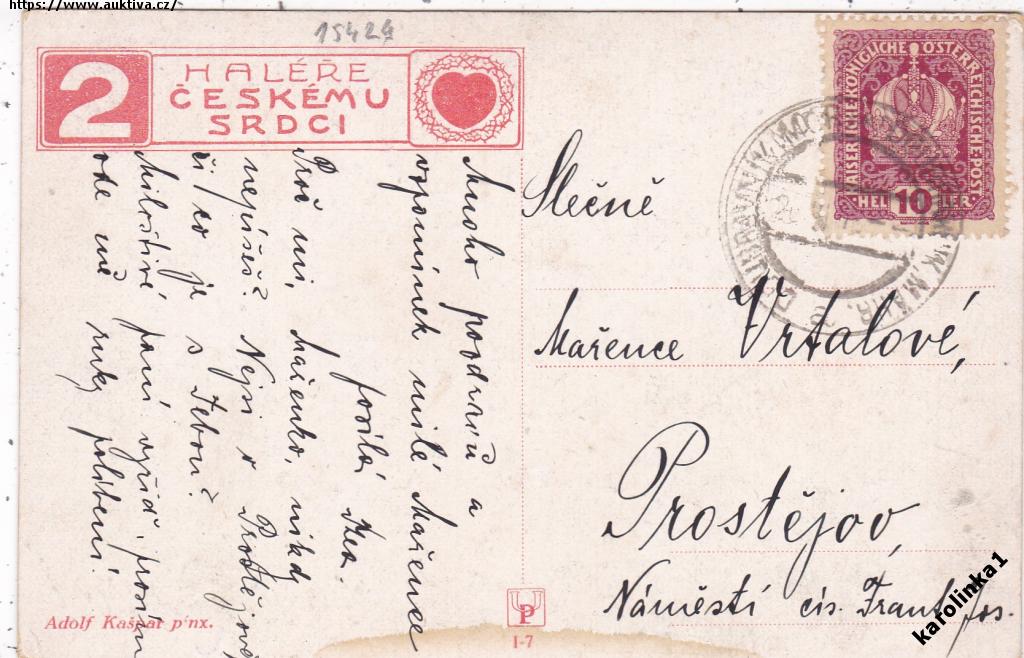 https://www.auktiva.cz/
15424
2
HALÉŘE
ČESKÉMU
SRDCI
KAISERLICHE KÖNIGLICHE ÖSTERREICHISCHE POST
HELLER
10
Slečně
Mařence Vrtalové,
Prostějov,
Náměstí cís. Frant. Jos.
Mnoho pozdravů a
vzpomínek milé Mařence
posílá
Proč mi, Mařenko, nikdy
nepíšeš? Nejsi v Prostějově
či co je s Tebou?
Milostivé paní vyřiď, prosím
ode mě ruky políbení.
Adolf Kašpar pinx.
UP
I-7
karolinka1